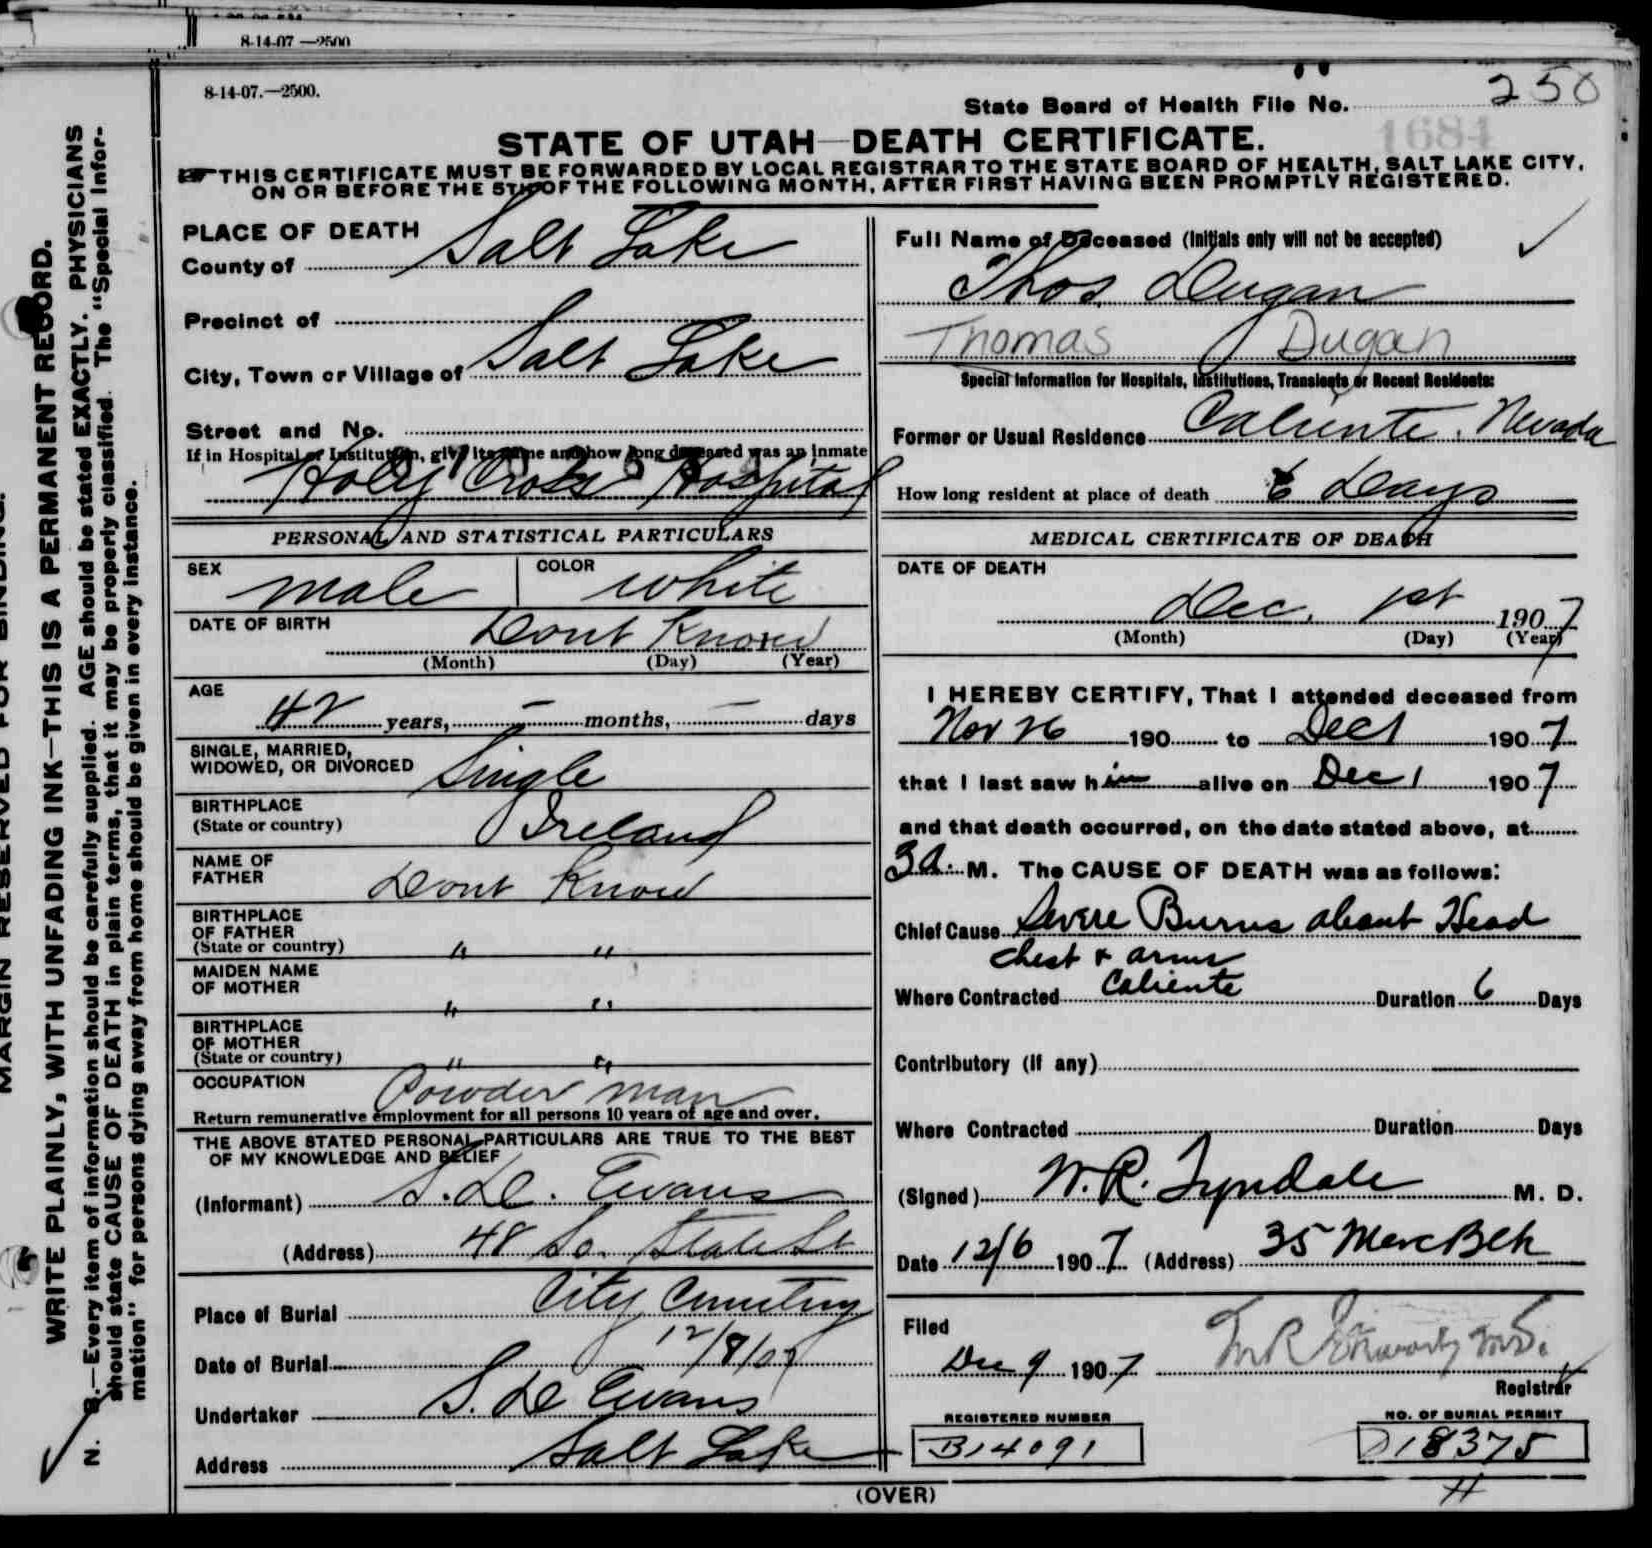 8-14-07 —2500
8-14-07.—2500.
State Board of Health File No. 250
1684
STATE OF UTAH—DEATH CERTIFICATE.
THIS CERTIFICATE MUST BE FORWARDED BY LOCAL REGISTRAR TO THE STATE BOARD OF HEALTH, SALT LAKE CITY,
ON OR BEFORE THE 5TH OF THE FOLLOWING MONTH, AFTER FIRST HAVING BEEN PROMPTLY REGISTERED.
MARGIN RESERVED FOR BINDING.
WRITE PLAINLY, WITH UNFADING INK—THIS IS A PERMANENT RECORD.
N. B.—Every item of information should be carefully supplied. AGE should be stated EXACTLY. PHYSICIANS
should state CAUSE OF DEATH in plain terms, that it may be properly classified. The "Special Infor-
mation" for persons dying away from home should be given in every instance.
PLACE OF DEATH
County of Salt Lake
Precinct of
City, Town or Village of Salt Lake
Street and No.
If in Hospital or Institution, give its name and how long deceased was an inmate
Holy Cross Hospital
PERSONAL AND STATISTICAL PARTICULARS
SEX male COLOR White
DATE OF BIRTH Dont Know
(Month) (Day) (Year)
AGE
42 years, – months, – days
SINGLE, MARRIED,
WIDOWED, OR DIVORCED Single
BIRTHPLACE
(State or country) Ireland
NAME OF
FATHER Dont Know
BIRTHPLACE
OF FATHER
(State or country) " "
MAIDEN NAME
OF MOTHER " "
BIRTHPLACE
OF MOTHER
(State or country) " "
OCCUPATION Powder man
Return remunerative employment for all persons 10 years of age and over.
THE ABOVE STATED PERSONAL PARTICULARS ARE TRUE TO THE BEST
OF MY KNOWLEDGE AND BELIEF
(Informant) S. D. Evans
(Address) 48 So. State St
Place of Burial City Cemetery
Date of Burial 12/8/07
Undertaker S. D Evans
Address Salt Lake
Full Name of Deceased (Initials only will not be accepted)
Thos Dugan
Thomas Dugan
Special Information for Hospitals, Institutions, Transients or Recent Residents:
Former or Usual Residence Caliente. Nevada
How long resident at place of death 6 Days
MEDICAL CERTIFICATE OF DEATH
DATE OF DEATH
Dec. 1st 1907
(Month) (Day) (Year)
I HEREBY CERTIFY, That I attended deceased from
Nov 26 190 to Dec 1 1907
that I last saw him alive on Dec 1 1907
and that death occurred, on the date stated above, at
3 a. M. The CAUSE OF DEATH was as follows:
Chief Cause Severe Burns about Head
chest & arms
Where Contracted Caliente Duration 6 Days
Contributory (if any)
Where Contracted Duration Days
(Signed) W. R. Tyndale M. D.
Date 12/6 1907 (Address) 35 Merc Blk
Filed
Dec 9 1907
Registrar
REGISTERED NUMBER
B14091
NO. OF BURIAL PERMIT
D18375
(OVER)